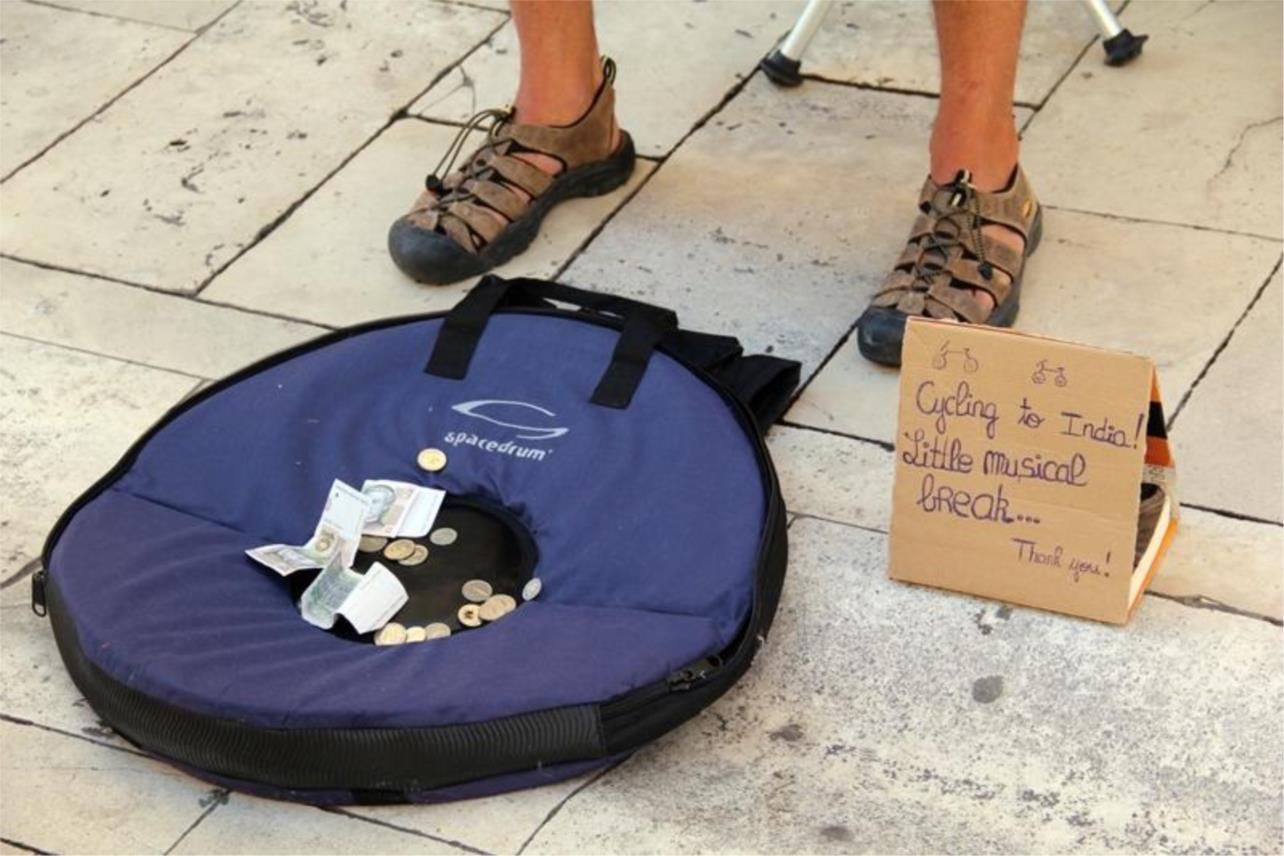 spacedrum
Cycling to India!
Little musical
break...
Thank you!